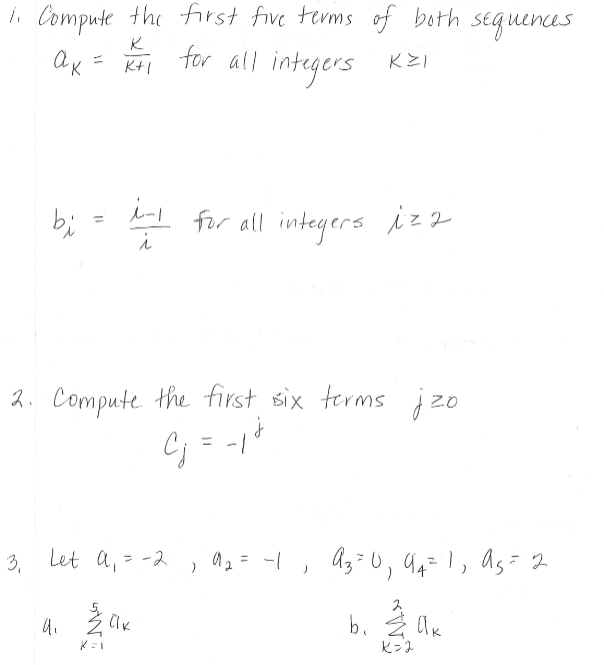 1. Compute the first five terms of both sequences
a_K = K/(K+1) for all integers K ≥ 1
b_i = (i-1)/i for all integers i ≥ 2
2. Compute the first six terms j ≥ 0
C_j = -1^j
3. Let a_1 = -2 , a_2 = -1 , a_3 = 0, a_4 = 1, a_5 = 2
a. 5 Σ K=1 a_K b. 2 Σ K=2 a_K